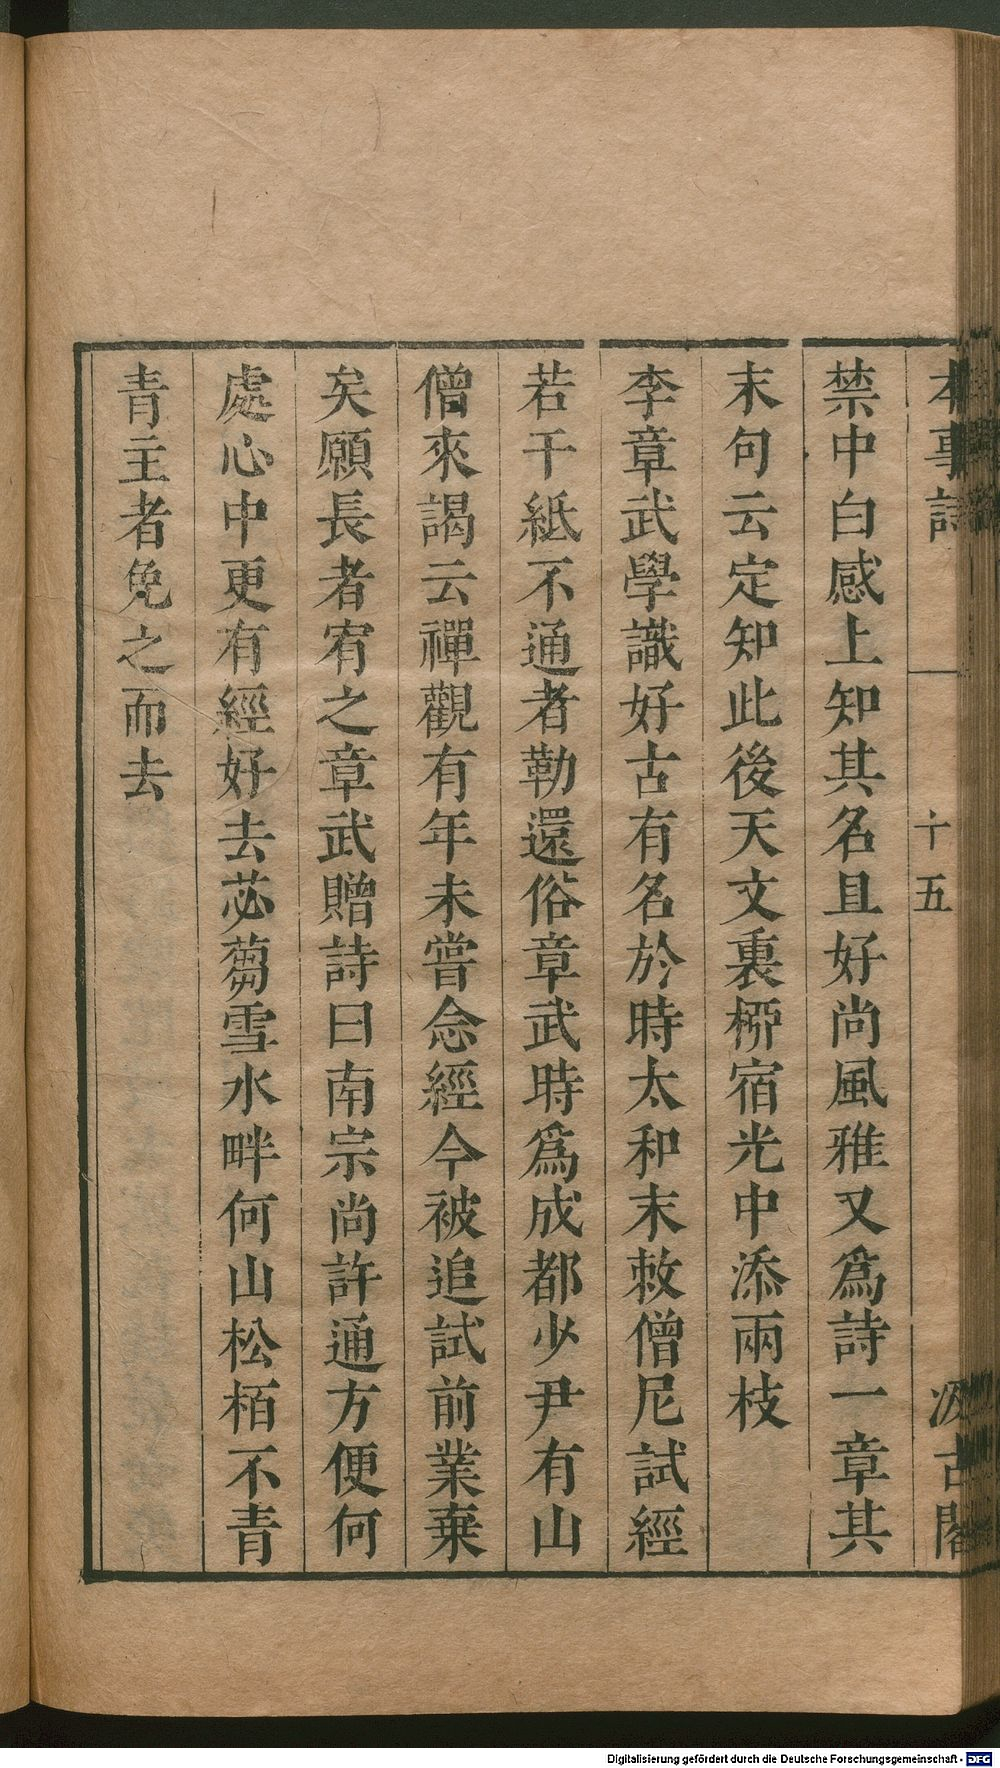 本事詩 十五 汲古閣
禁中白感上知其名且好尚風雅又爲詩一章其
末句云定知此後天文裏桺宿光中添兩枝
李章武學識好古有名於時太和末敕僧尼試經
若干紙不通者勒還俗章武時爲成都少尹有山
僧來謁云禪觀有年未嘗念經今被追試前業棄
矣願長者宥之章武贈詩曰南宗尚許通方便何
處心中更有經好去苾蒭雪水畔何山松栢不青
青主者免之而去
Digitalisierung gefördert durch die Deutsche Forschungsgemeinschaft - DFG